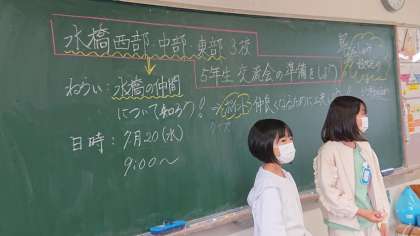 水橋西部・中部・東部3校
5年生 交流会の準備をしよう
ねらい:水橋の仲間
について知ろう!
⇒ 仲良くなるために
クイズ
日時:7月20(水)
9:00〜